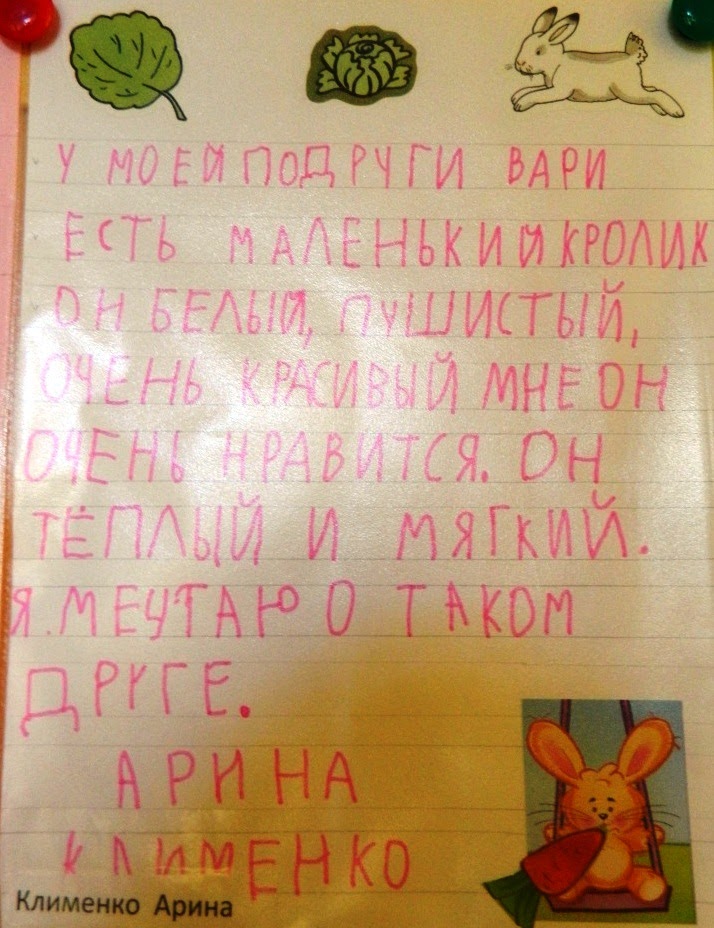 У МОЕЙ ПОДРУГИ ВАРИ
ЕСТЬ МАЛЕНЬКИЙ КРОЛИК
ОН БЕЛЫЙ, ПУШИСТЫЙ,
ОЧЕНЬ КРАСИВЫЙ МНЕ ОН
ОЧЕНЬ НРАВИТСЯ. ОН
ТЁПЛЫЙ И МЯГКИЙ.
Я МЕЧТАЮ О ТАКОМ
ДРУГЕ.
АРИНА
КЛИМЕНКО
Клименко Арина